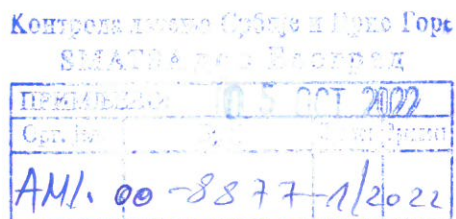 Контрола летења Србије и Црне Горе
SMATSA доо Београд
ПРИМЉЕНО: 05 OCT 2022
Орг. јед.
AMI. 00-8877-1/2022